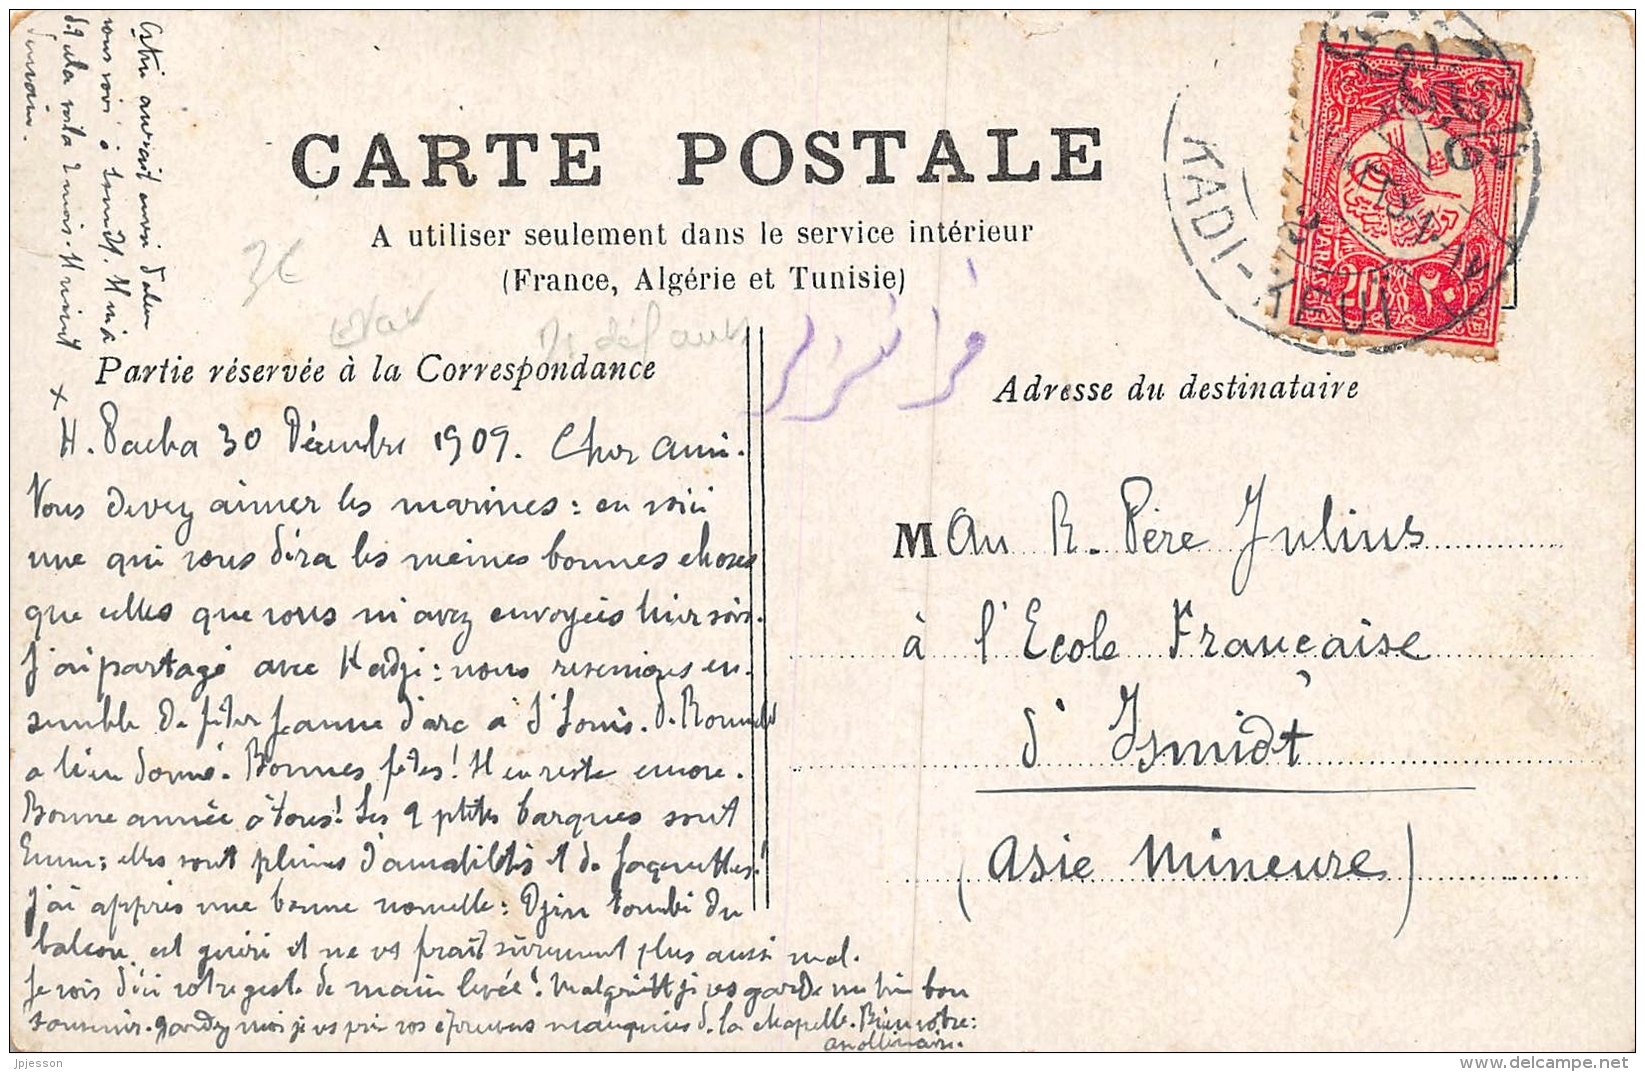 CARTE POSTALE
A utiliser seulement dans le service intérieur
(France, Algérie et Tunisie)
3€
Partie réservée à la Correspondance
Adresse du destinataire
KADI-KEUI
20 PARAS ٢٠
défauts
H. Pacha 30 Décembre 1909. Cher ami.
Vous devez aimer les marines : en voici
une qui vous dira les mêmes bonnes choses
que celles que vous m'avez envoyées hier soir.
J'ai partagé avec Kadji : nous
semble de fêter Jeanne d'arc à St Louis.
a bien donné. Bonnes fêtes ! Il en reste encore.
Bonne année à tous ! Les 2 ptites barques sont
elles sont pleines d'amabilités et de
J'ai appris une bonne nouvelle : Djin tombé du
balcon est guéri et ne vs frait sûrement plus aussi mal.
Je vois d'ici votre geste de main levée ! Malgré tt je vs garde un bien bon
souvenir. gardez moi je vs prie vos épreuves manquées de la chapelle. Bien vôtre :
apollinaire.
M Au R. Père Julius
à l'Ecole Française
d'Ismidt
(Asie Mineure)
aurait envie d'aller
vous voir à Ismidt. Il m'a
dit cela voila 2 mois. Il vient
demain.
jpjesson
www.delcampe.net